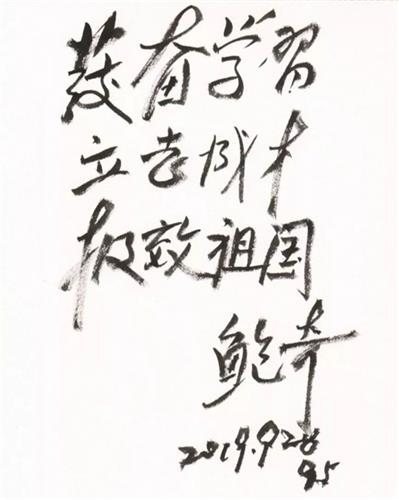 发奋学习
立志成才
报效祖国
鲍奇
2019.9.28
95